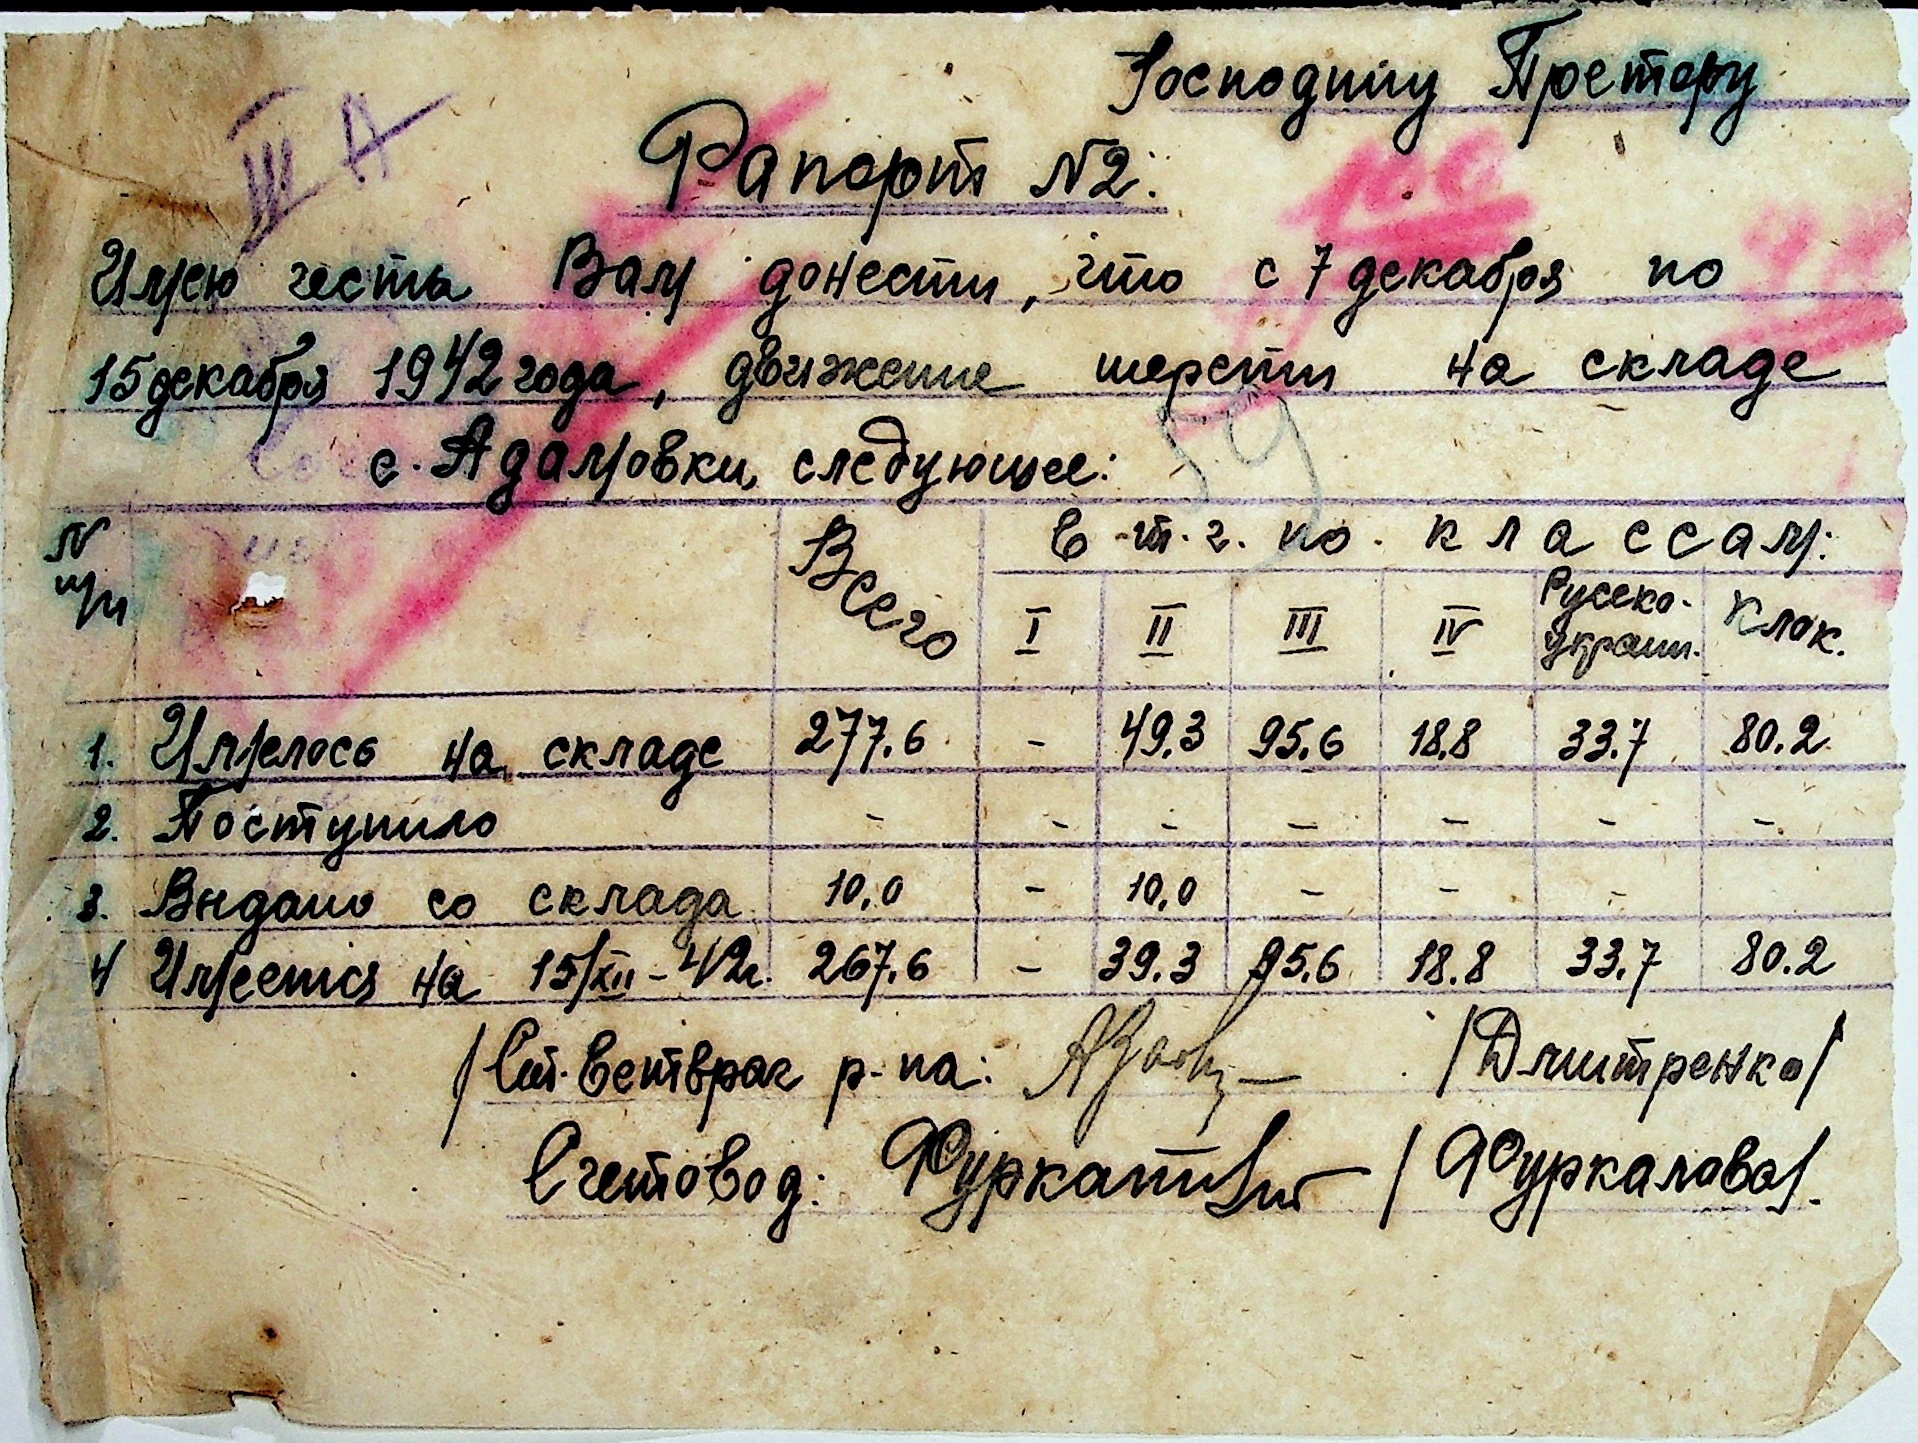 Господину Претору
III А
Рапорт №2:
Имею честь Вам донести, что с 7 декабря по
15 декабря 1942 года, движение шерсти на складе
с. Адамовки, следующее:
59
N п/п Всего в т. ч. по классам:
I II III IV Русско-украин. Клок.
1. Имелось на складе 277.6 - 49.3 95.6 18.8 33.7 80.2
2. Поступило - - - - - - -
3. Выдано со склада 10,0 - 10,0 - - -
4 Имеется на 15/XII-42г. 267.6 - 39.3 95.6 18.8 33.7 80.2
/Ст. Ветврач р-па: /Дмитренко/
Счетовод: /Фуркалова/.